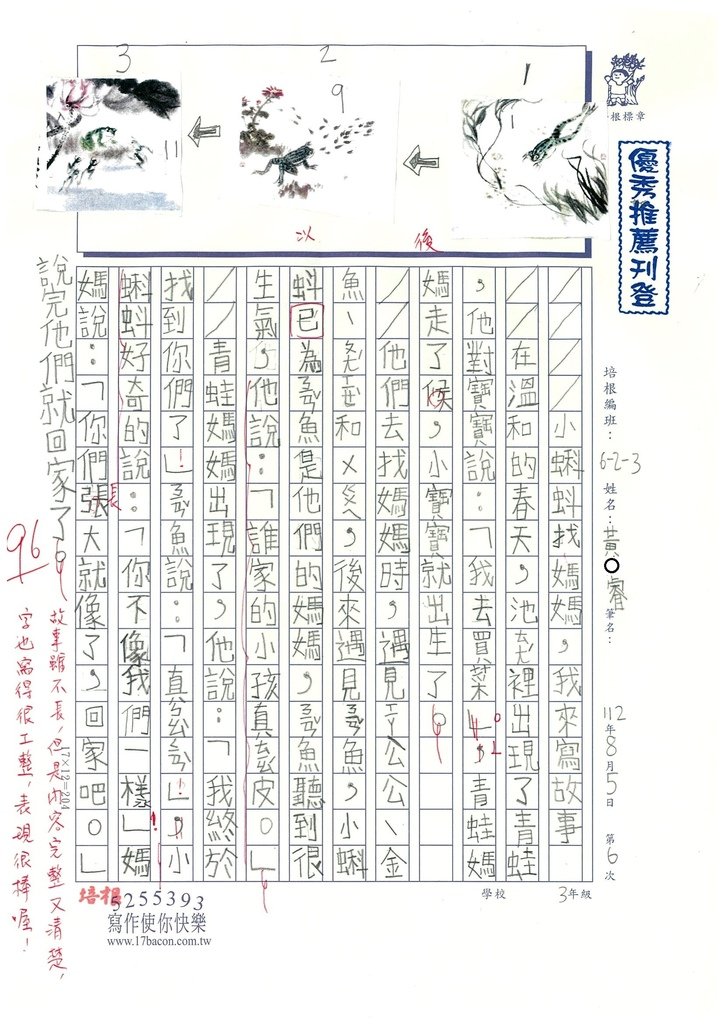 優秀推薦刊登
培根標章
培根編班：6-2-3 姓名：黃○睿 筆名： 112年8月5日 第6次
1
2
9
3
11
以
後
小蝌蚪找媽媽，我來寫故事
在溫和的春天，池ㄊㄤˊ裡出現了青蛙
，他對寶寶說：「我去買菜。」青蛙媽
媽走了候，小寶寶就出生了。
他們去找媽媽時，遇見公公、金
魚、和，後來遇見魚，小蝌
蚪已為魚是他們的媽媽，魚聽到很
生氣，他說：「誰家的小孩真皮。」
青蛙媽媽出現了，他說：「我終於
找到你們了！」魚說：「真！」小
蝌蚪好奇的說：「你不像我們一樣！」媽
媽說：「你們張大就像了，回家吧。」
長
說完他們就回家了。
96
故事雖不長，但是內容完整又清楚，
字也寫得很工整，表現很棒喔！
17×12=204
學校 3年級
培根 5255393
寫作使你快樂
www.17bacon.com.tw